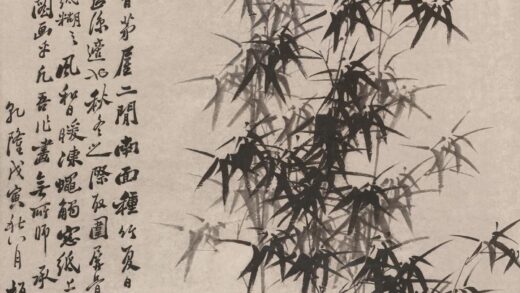 有茅屋二間南面種竹夏日
涼適也秋冬之際取圍屏骨
糊之風和日暖凍蠅觸窓紙上
圖画乎凡吾作畫無所師承
乾隆戊寅秋八月